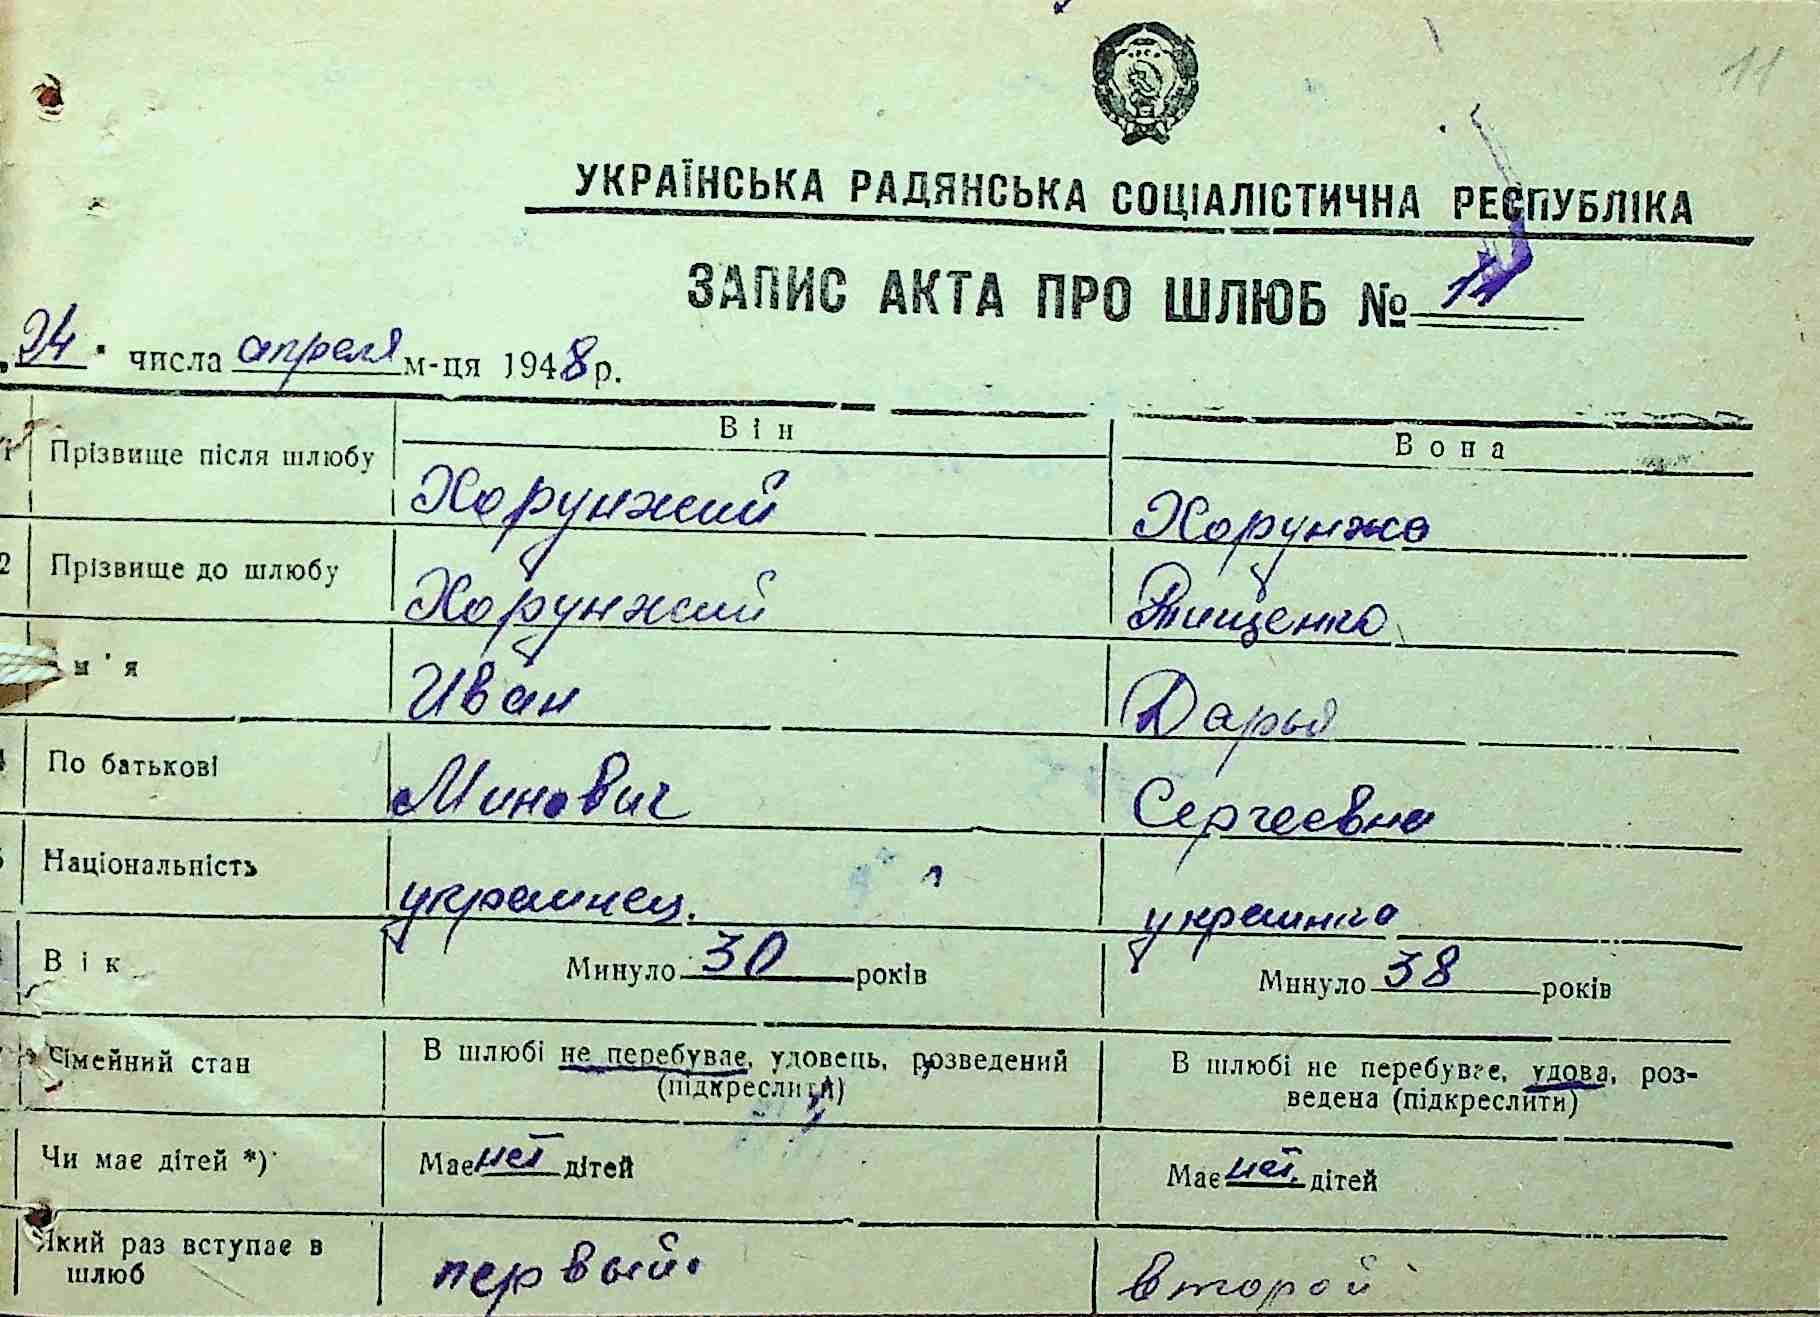 11
УКРАЇНСЬКА РАДЯНСЬКА СОЦІАЛІСТИЧНА РЕСПУБЛІКА
ЗАПИС АКТА ПРО ШЛЮБ №
24 числа апреля м-ця 1948 р.
Він Вона
1 Прізвище після шлюбу Хорунжий Хорунжа
2 Прізвище до шлюбу Хорунжий Тищенко
м'я Иван Дарья
4 По батькові Минович Сергеевна
5 Національність украинец. украинка
Вік Минуло 30 років Минуло 38 років
Сімейний стан В шлюбі не перебуває, удовець, розведений (підкреслити) В шлюбі не перебуває, удова, роз-
ведена (підкреслити)
Чи має дітей *) Має нет дітей Має нет. дітей
Який раз вступає в шлюб первый. второй